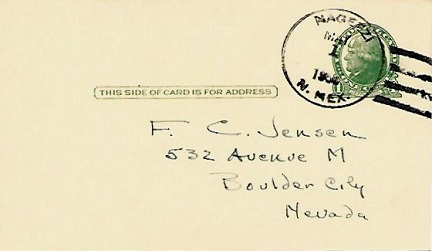 NAGEEZI
MAY
1
N. MEX.
THIS SIDE OF CARD IS FOR ADDRESS
F. C. Jensen
532 Avenue M
Boulder City
Nevada